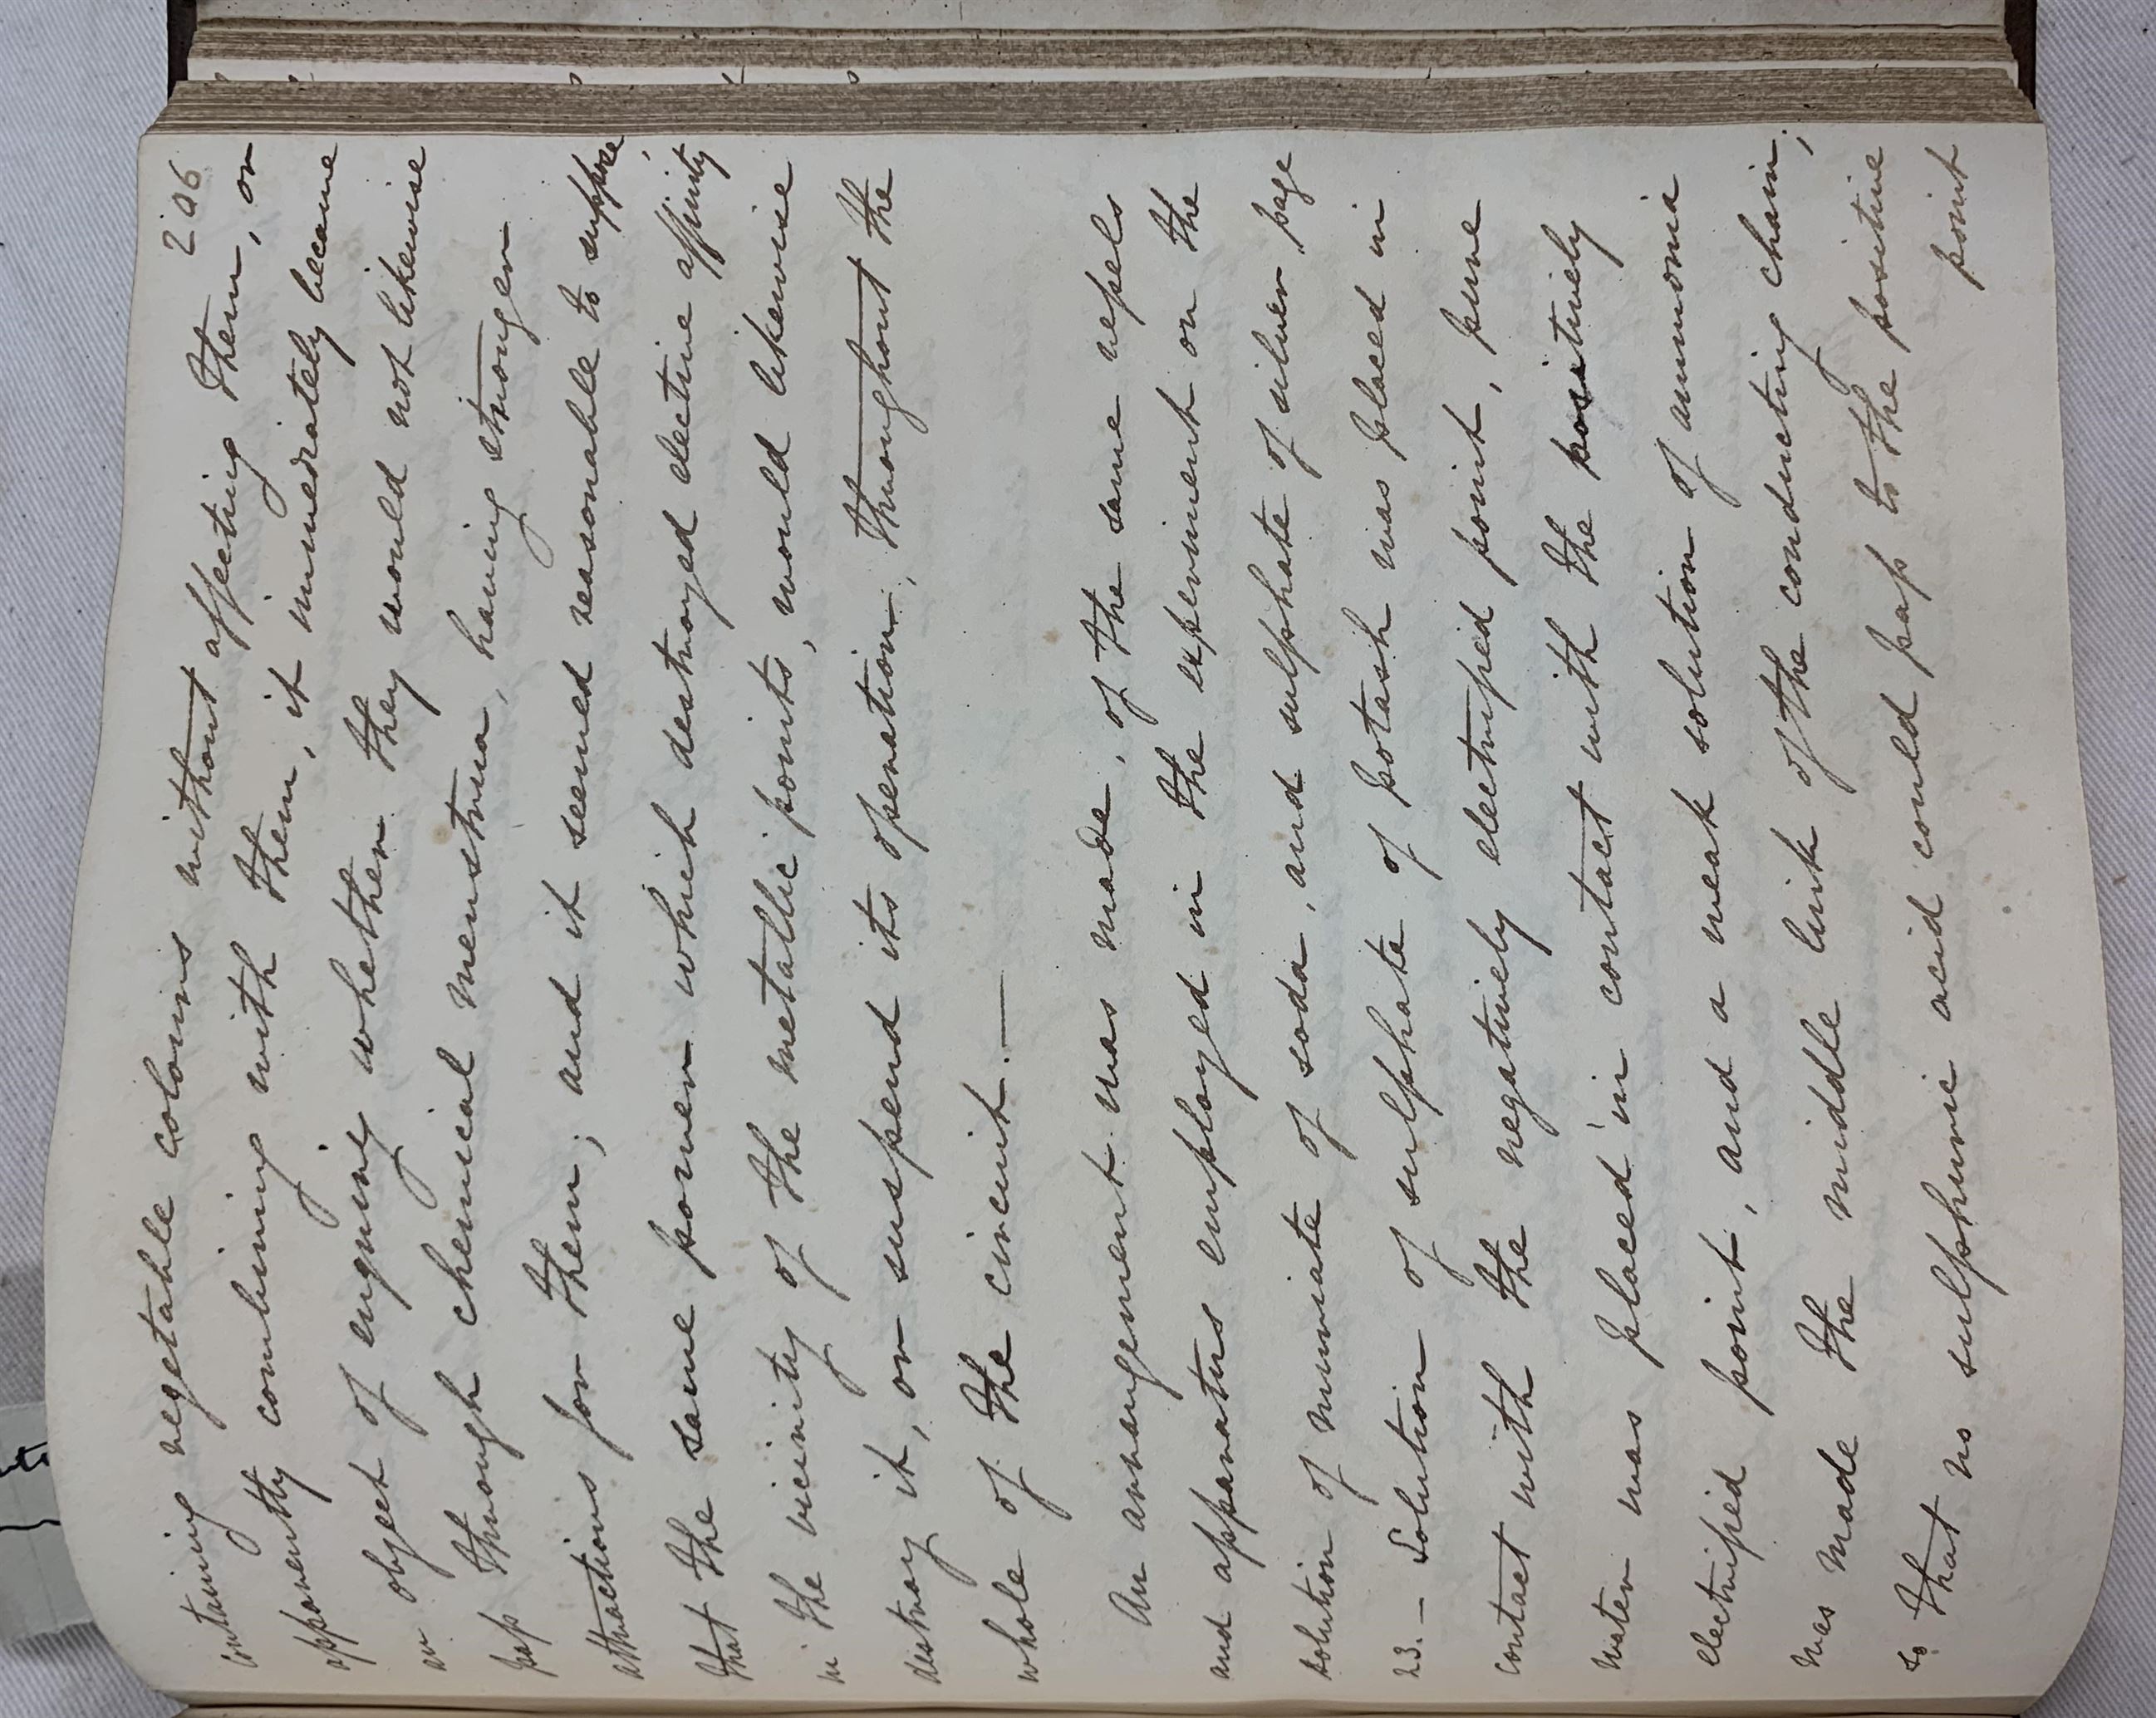 206
containing vegetable colours without affecting them, or
apparently combining with them, it immediately became
an object of enquiry whether they would not likewise
pass through chemical menstrua, having stronger
attractions for them; and it seemed reasonable to suppose,
that the same power which destroyed elective affinity
in the vicinity of the metallic points, would likewise
destroy it, or suspend its operation, throughout the
whole of the circuit.—
An arrangement was made, of the same vessels
and apparatus employed in the experiment on the
solution of muriate of soda, and sulphate of silver page
23.— Solution of sulphate of potash was placed in
contact with the negatively electrified point, pure
water was placed in contact with the positively
electrified point, and a weak solution of ammonia
was made the middle link of the conducting chain;
so that no sulphuric acid could pass to the positive
point